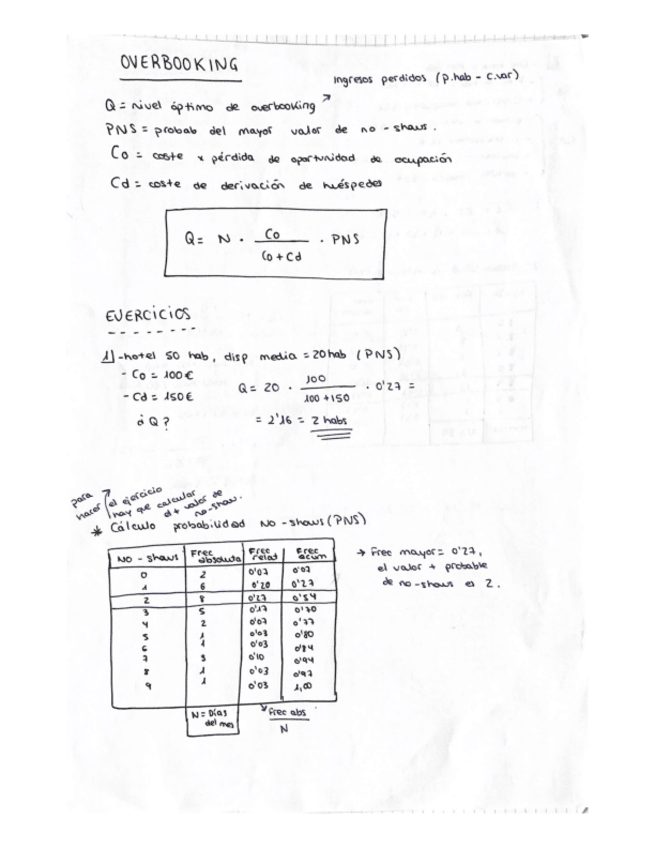 OVERBOOKING
Ingresos perdidos (p.hab - c.var)
Q = nivel óptimo de overbooking ↗
PNS = probab del mayor valor de no-shows.
Co = coste x pérdida de oportunidad de ocupación
Cd = coste de derivación de huéspedes
Q = N · Co / Co + Cd · PNS
EJERCICIOS
1) -hotel 50 hab, disp media = 20 hab (PNS)
- Co = 100€
- Cd = 150€
Q = 20 · 100 / 100 + 150 · 0'27 =
¿Q?
= 2'16 = 2 habs
para hacer el ejercicio
hay que calcular
el + valor de
no-show.
* Cálculo probabilidad NO-shows (PNS)
NO-shows Frec absoluta Frec relat Frec acum
0 2 0'07 0'07
1 6 0'20 0'27
2 8 0'27 0'54
3 5 0'17 0'70
4 2 0'07 0'77
5 1 0'03 0'80
6 1 0'03 0'84
7 3 0'10 0'94
8 1 0'03 0'97
9 1 0'03 1,00
N = Días del mes
Frec abs / N
→ Frec mayor = 0'27,
el valor + probable
de no-shows es 2.